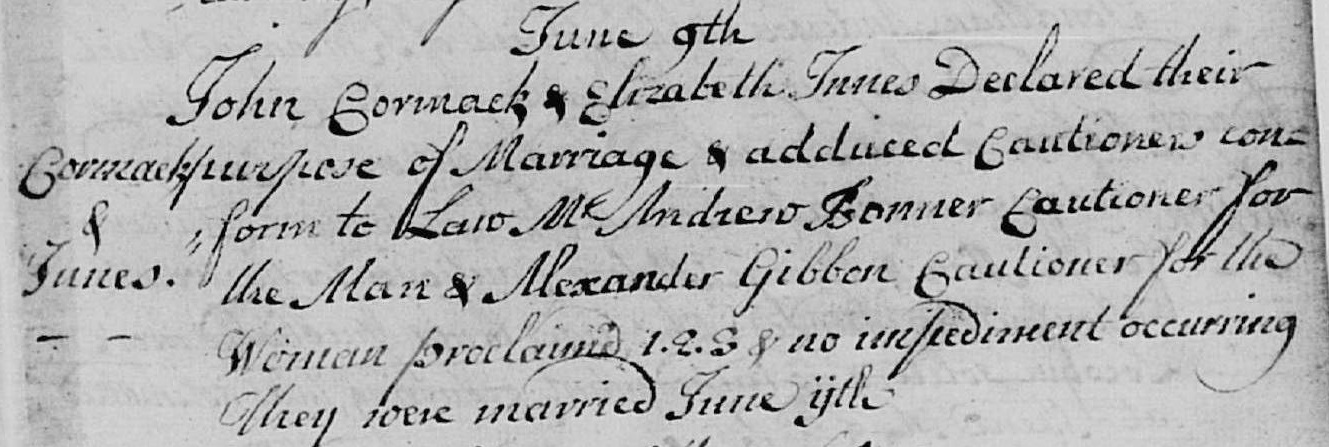 June 9th
John Cormack & Elizabeth Innes Declared their
Cormack purpose of Marriage & adduced Cautioners con=
& form to Law Mr Andrew Bonner Cautioner for
Innes. the Man & Alexander Gibbon Cautioner for the
Woman proclaim'd 1. 2. 3 & no impediment occurring
they were married June ijth